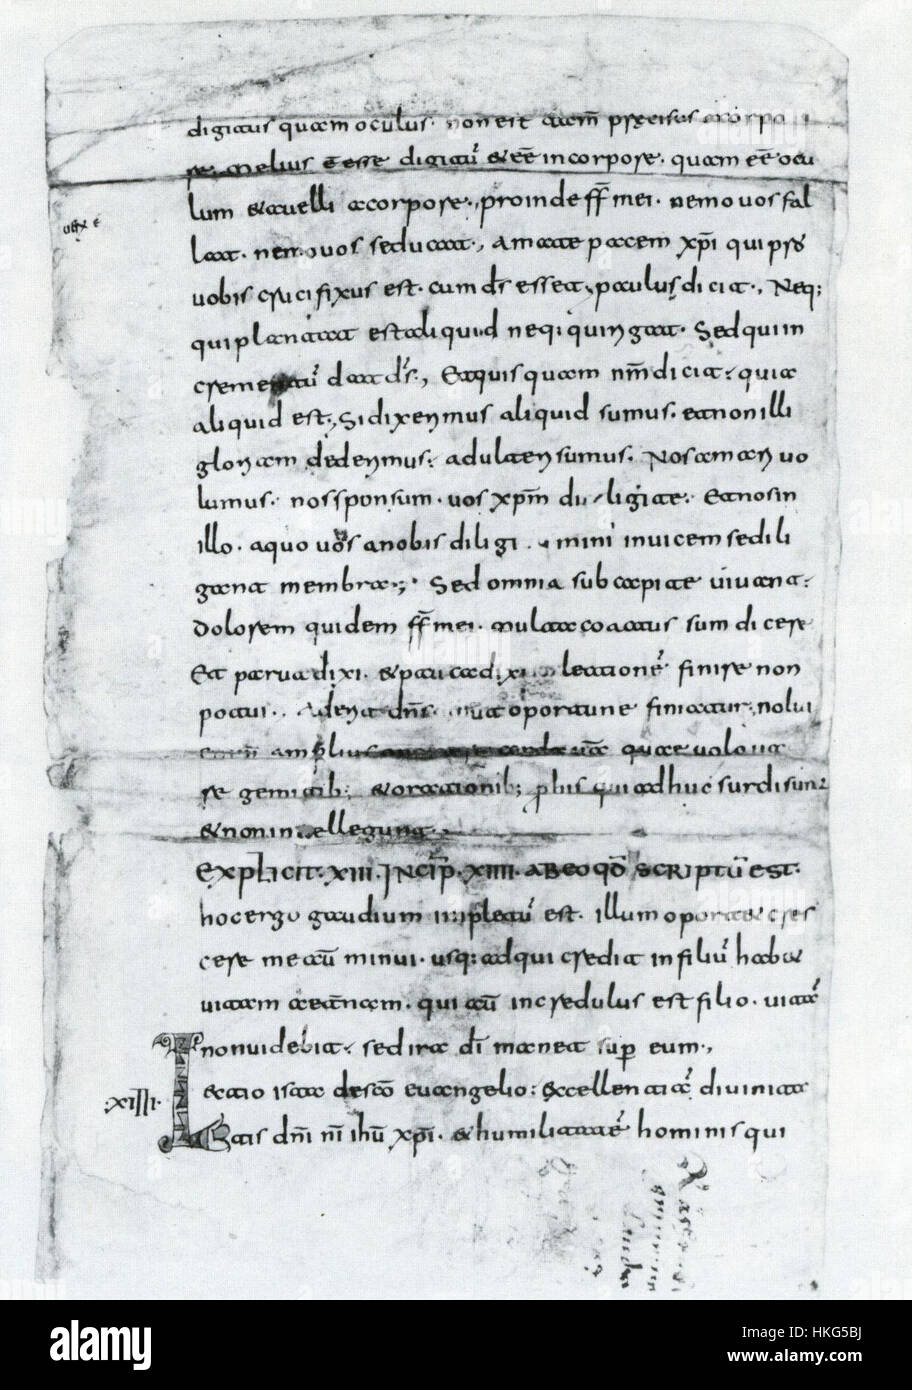 digitus quam oculus. non est tam̄ p̄cisus a corpo
re. Melius ē esse digitū & eē in corpore. quam eē ocu
lum & auelli a corpore., proinde ff̄ mei. nemo uos fal
lat. nemo uos seducat., amate pacem xp̄i qui pro
uobis crucifixus est. cum d̄s esset, paulus dicit., Neq;
qui plantat est aliquid neq; qui rigat. Sed qui in
crementū dat d̄s., Et quisquam nr̄m dicit; quia
aliquid est., Si dixerimus aliquid sumus. et non illi
gloriam dederimus; adulteri sumus. Nos amari uo
lumus. non sponsum. uos xp̄m diligite. Et nos in
illo. a quo uos a nobis diligimini inuicem se dili
gant membra; Sed omnia sub capite uiuant;
Dolorem quidem ff̄ mei. multa coactus sum dicere
Et parua dixi. & pauca dixi lectionē finire non
potui.. Aderit dn̄s. ut oportune finiatur, nolui
enim amplius quae uolo ua
re gemitib; & orationib; p his qui adhuc surdi sunt
& non intellegunt.
EXPLICIT. XIII. INCIP̄. XIIII. AB EO QŌ SCRIPTŪ EST.
hoc ergo gaudium impletū est. illum oport& cres
cere me autē minui. usq; ad qui credit in filiū hab&
uitam aet̄nam. qui autē incredulus est filio. uitā
non uidebit; sed ira dī manet sup eum.,
.XIIII. Lectio ista de sc̄o euangelio; excellentiā diuinita
tis dn̄i nr̄i ih̄u xp̄i. & humilitatē hominis qui
alamy
Image ID: HKG5BJ
www.alamy.com